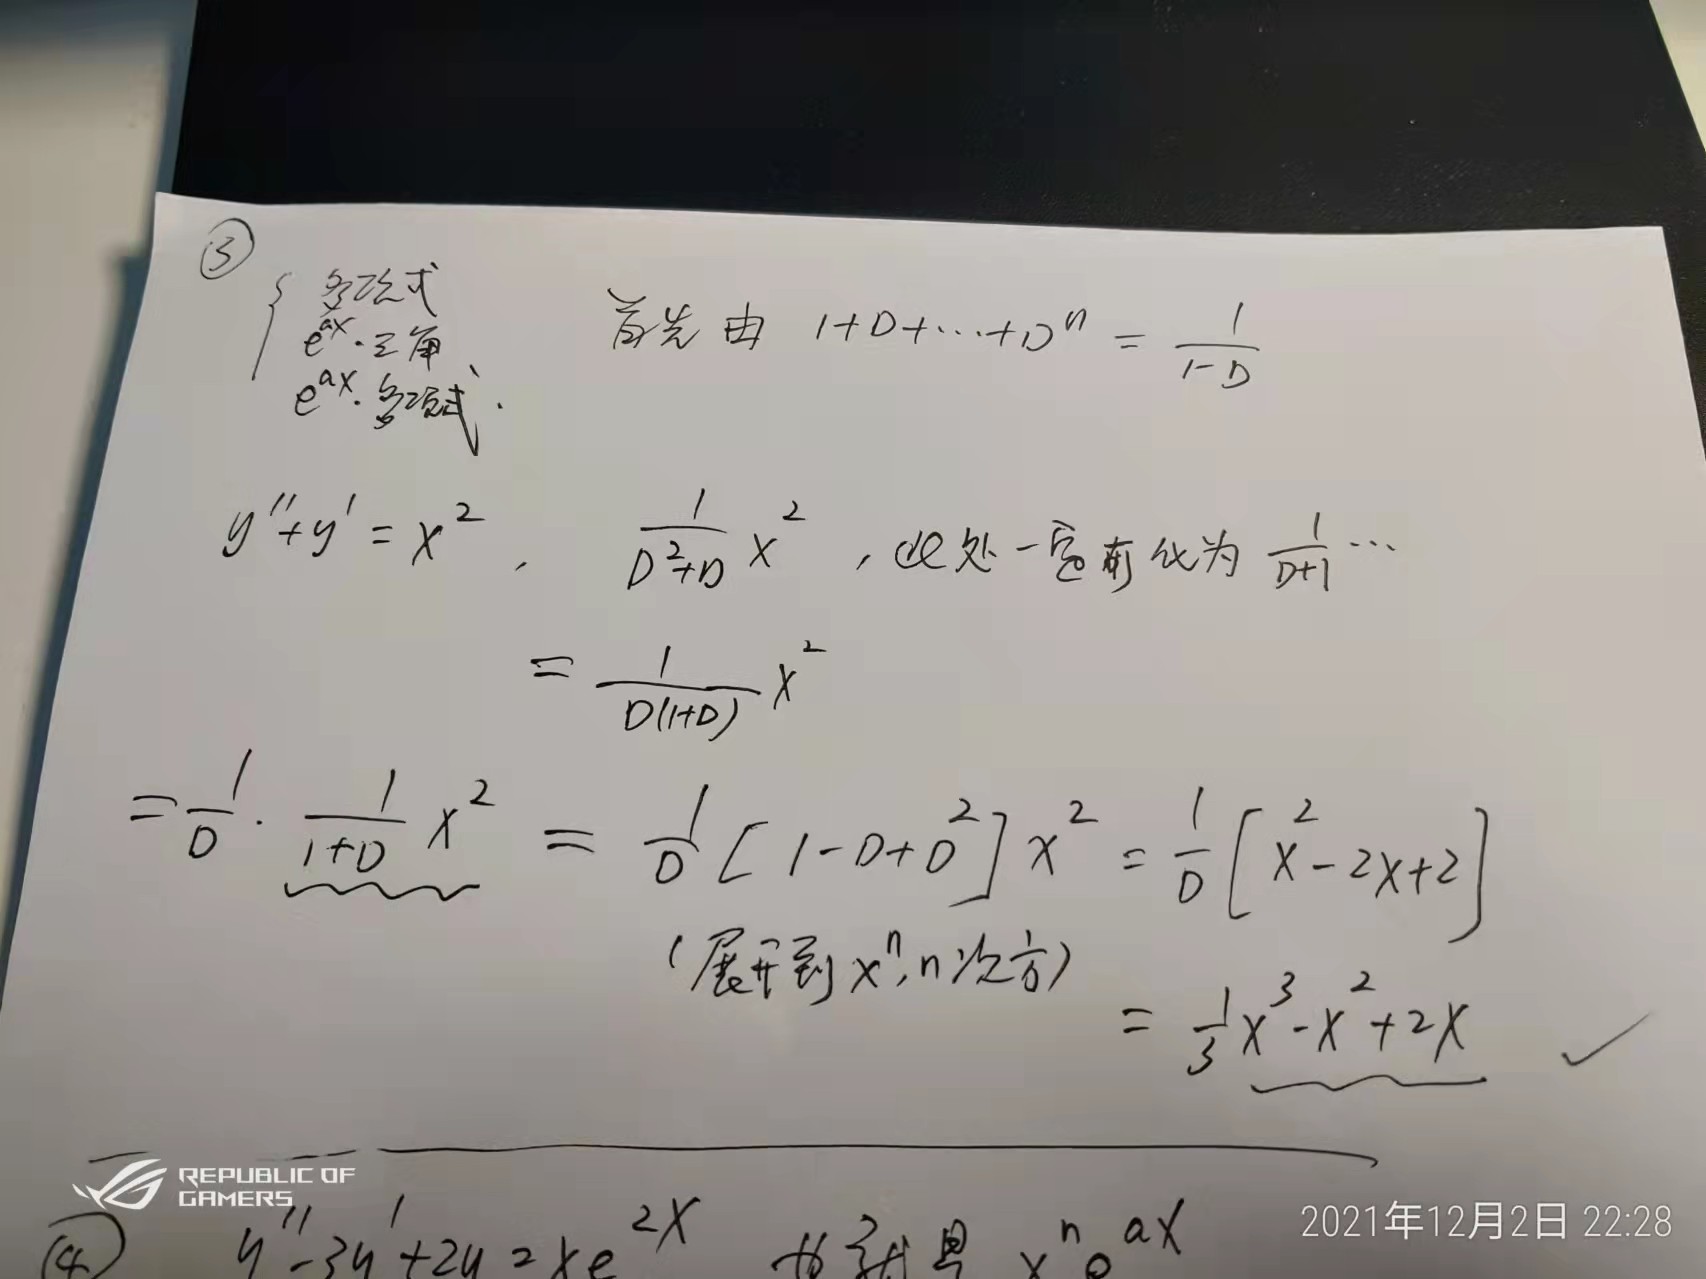 ③
{ 多项式
e^{ax}·三角
e^{ax}·多项式.
首先由 1+D+…+D^n = \frac{1}{1-D}
y''+y' = x^2 , \frac{1}{D^2+D} x^2 , 此处一定要化为 \frac{1}{D+1} …
= \frac{1}{D(1+D)} x^2
= \frac{1}{D} · \frac{1}{1+D} x^2 = \frac{1}{D} [1-D+D^2] x^2 = \frac{1}{D} [x^2-2x+2]
(展开到 x^n, n次方)
= \frac{1}{3}x^3-x^2+2x ✓
④ y''-3y'+2y=xe^{2x} 也就是 x^n e^{ax}
REPUBLIC OF
GAMERS
2021年12月2日 22:28